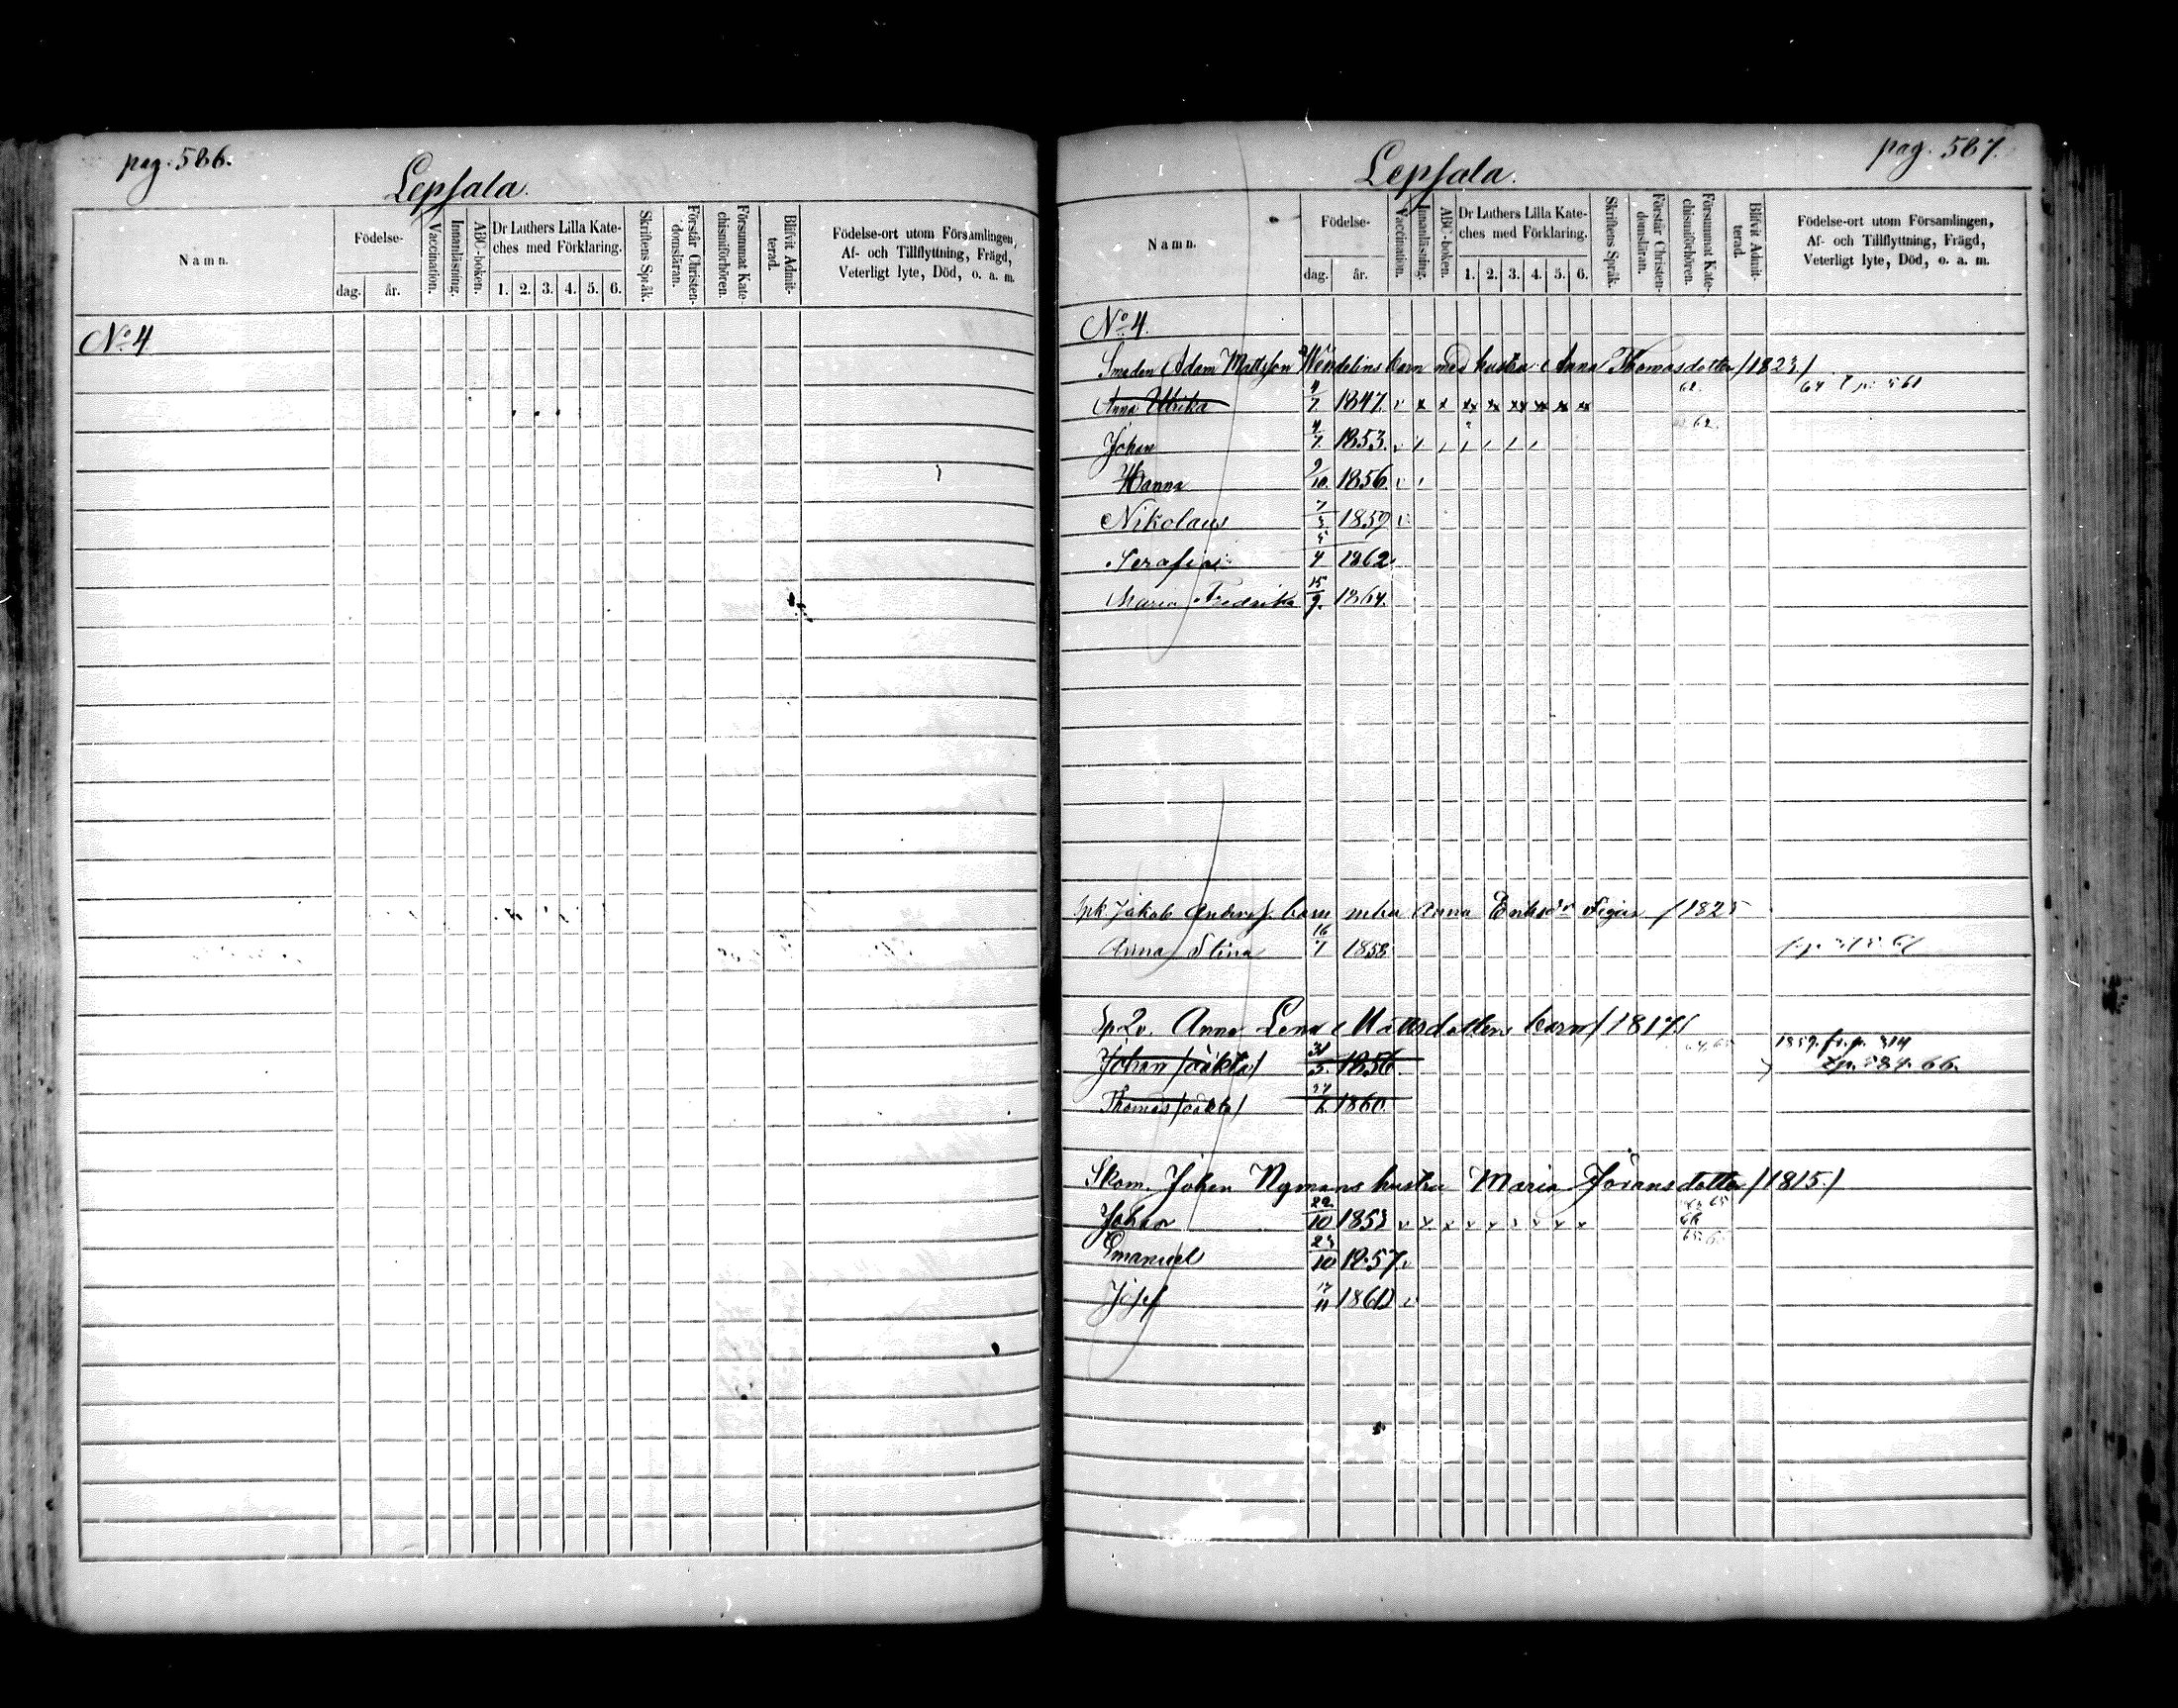 pag. 586.
Lepsala.
Namn.
Födelse-
dag. år.
Vaccination.
Innanläsning.
ABC-boken.
Dr Luthers Lilla Kate-
ches med Förklaring.
1. 2. 3. 4. 5. 6.
Skriftens Språk.
Förstår Christen-
domsläran.
Försummat Kate-
chismiförhören.
Blifvit Admit-
terad.
Födelse-ort utom Församlingen,
Af- och Tillflyttning, Frägd,
Veterligt lyte, Död, o. a. m.
No 4
pag. 587.
Lepsala.
Namn.
Födelse-
dag. år.
Vaccination.
Innanläsning.
ABC-boken.
Dr Luthers Lilla Kate-
ches med Förklaring.
1. 2. 3. 4. 5. 6.
Skriftens Språk.
Förstår Christen-
domsläran.
Försummat Kate-
chismiförhören.
Blifvit Admit-
terad.
Födelse-ort utom Församlingen,
Af- och Tillflyttning, Frägd,
Veterligt lyte, Död, o. a. m.
No 4.
Smeden Adam Mattsson Wendelins barn med hustru Anna Thomasdotter /1823/
Anna Ulrika 4/7 1847. v x x xx xx xx xx xx xx 62.
Johan 4/7. 1853. 62.
Hanna 9/10. 1856.
Nikolaus 7/3 1859 v
Serafia 5/4 1862.
Maria Fredrika 15/9. 1864.
Jakob barn Anna /1825
Anna Stina 16/7 1858
Anna Lena Mattsdotters barn /1817/
Johan /oäkta/ 31/3. 1856 1859. fr. p. 314
66.
Thomas /oäkta/ 1860.
Skom. Johan Nymans hustru Maria Göransdotter /1815./
Johan 10 1853
66
Emanuel 23/10 1857 v
Josef 1860 v